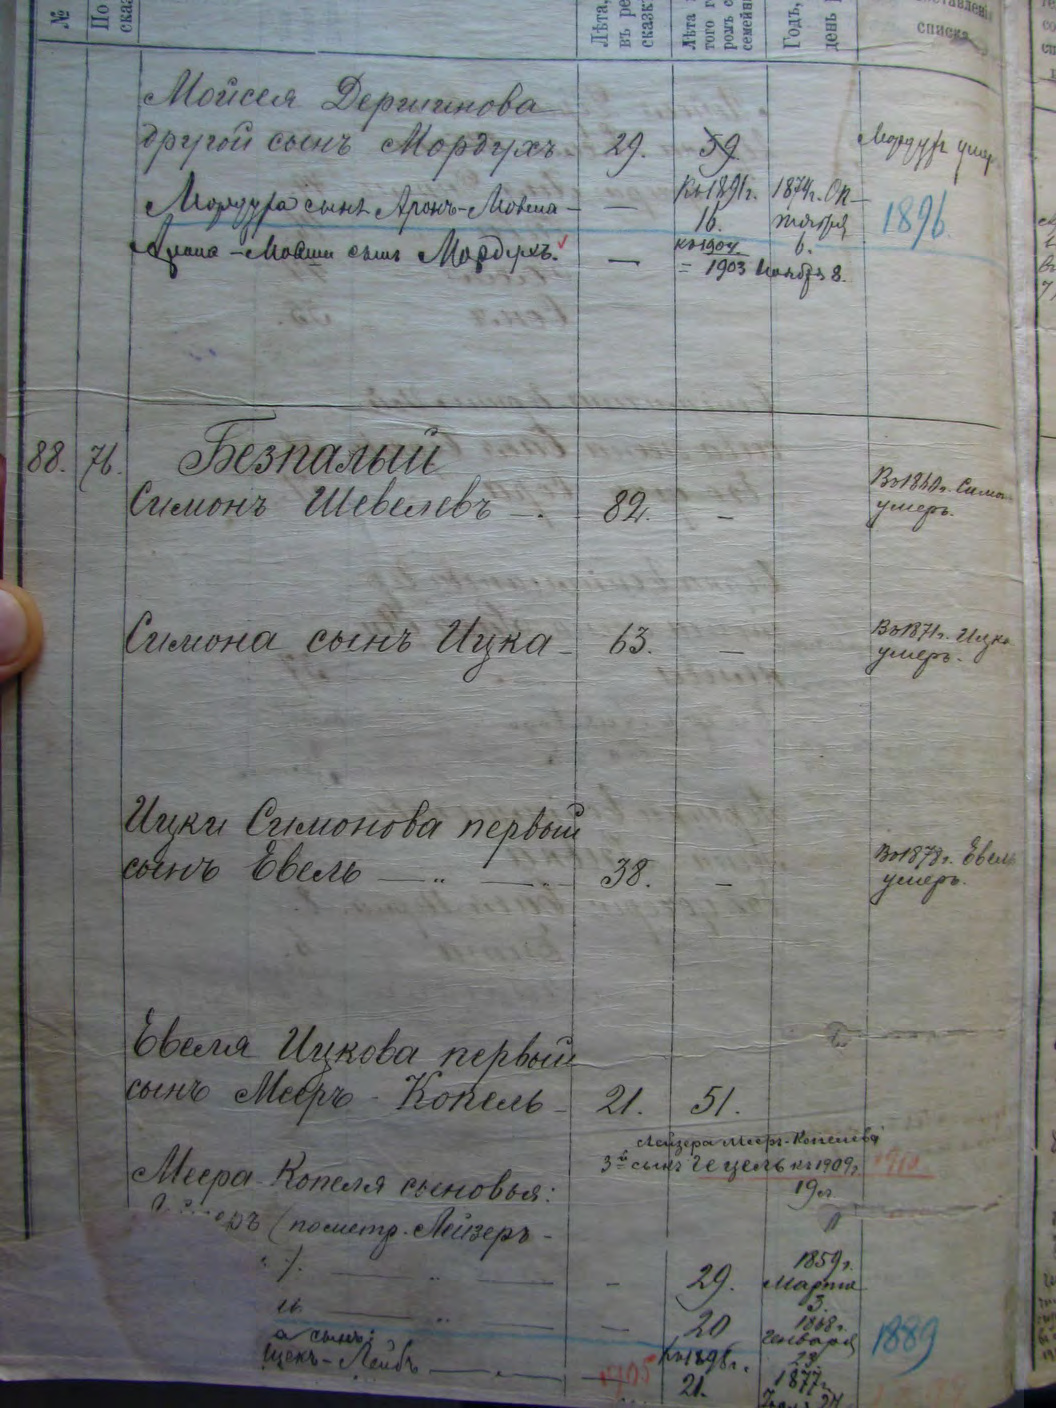 №
По
сказ
Лѣта,
въ ре
сказк
Лѣта
того г
ромъ с
семейн
Годъ,
день
списка
Мойсея
другой сынъ Мордухъ 29. 59. Мордухъ умер
Къ 1891 г. 1874 г. Ок-
Мордуха сынъ Аронъ-Мовша — — 16. тября 1896.
къ 1904. 6.
Арона-Мовши сынъ Мордухъ. — = 1903 Ноября 8.
88. 76. Безпалый
Симонъ Шевелевъ — 82. — Въ 1860 г. Симо
умеръ.
Симона сынъ Ицка — 63. — Въ 1871 г. Ицка
умеръ.
Ицки Симонова первый
сынъ Евель — „ — „ 38. — Въ 1878 г. Евель
умеръ.
Евеля Ицкова первый
сынъ Мееръ-Копель — 21. 51.
Лейзера Меер-Копелева
3й сынъ Гецель къ 1909 г. 1910
19 л
Меера Копеля сыновья:
(посметр. Лейзеръ —
1859 г.
— „ — — 29. Марта
3.
ль — „ — — 20 1868 г.
Генваря 1889
а сынъ: Къ 1898 г. 23.
Лейбъ — „ — — 1905 21. 1877 г.